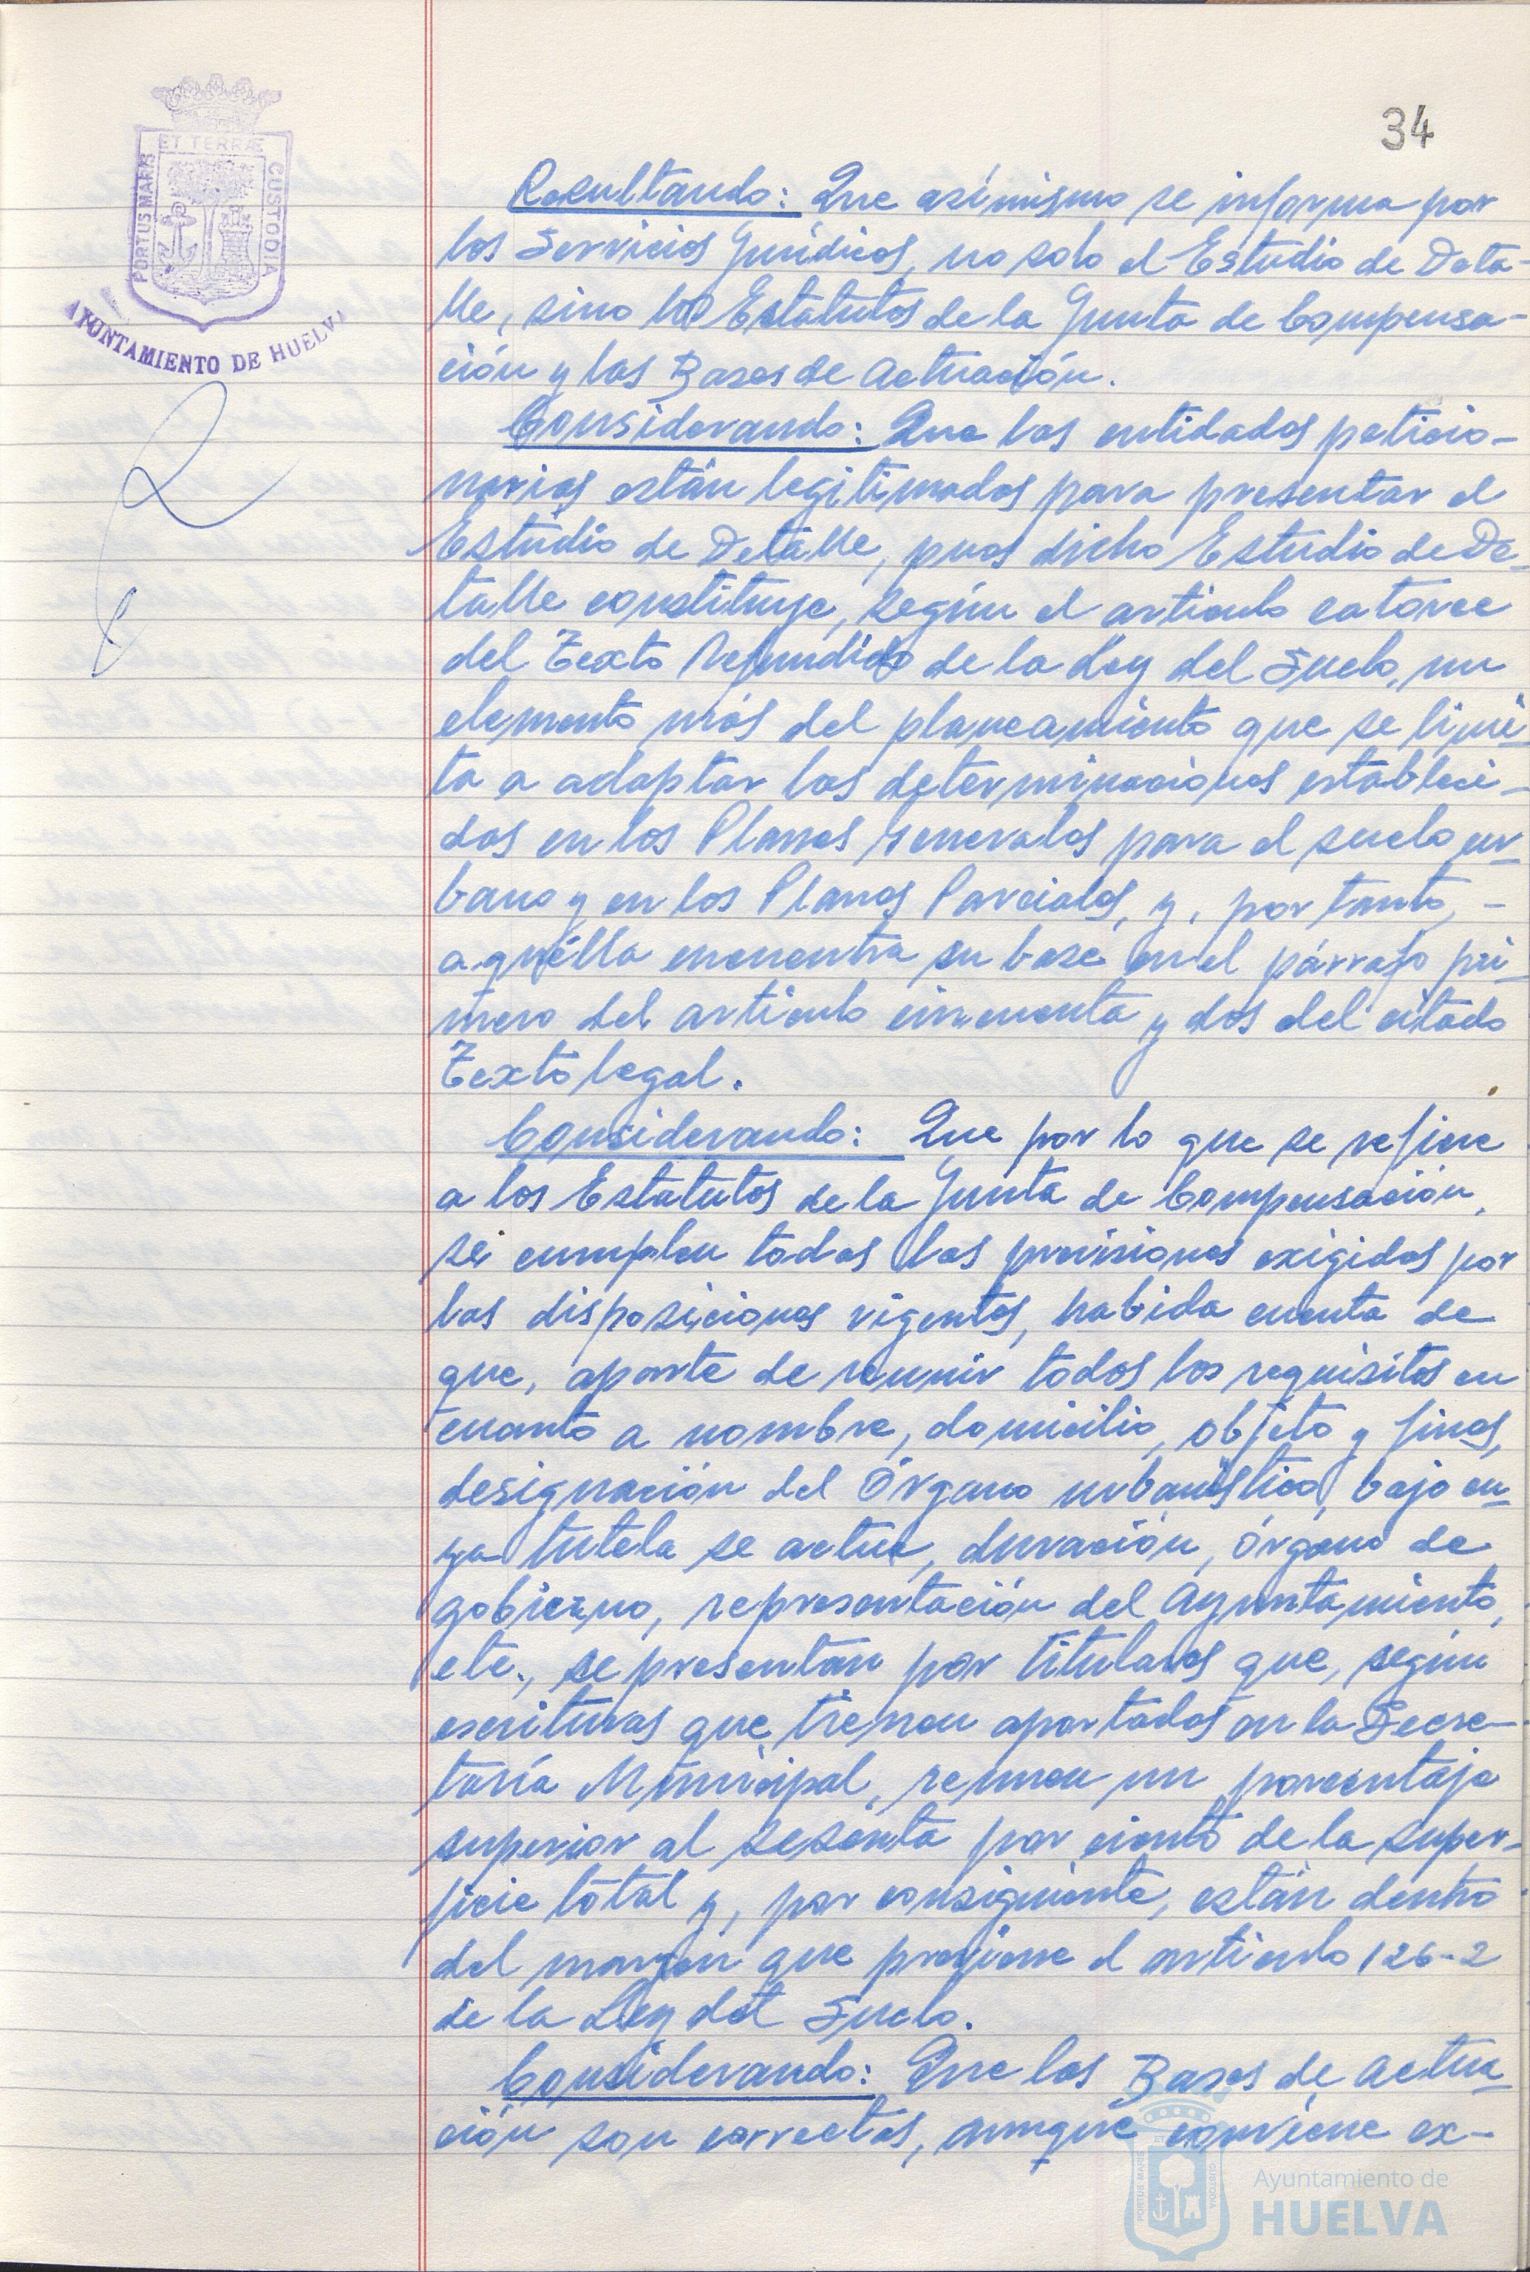 34
ET TERRÆ
PORTUS MARIS
CUSTODIA
AYUNTAMIENTO DE HUELVA
Resultando: Que asimismo se informa por
los Servicios Jurídicos, no solo el Estudio de Deta-
lle, sino los Estatutos de la Junta de Compensa-
ción y las Bases de Actuación.
Considerando: Que las entidades peticio-
narias están legitimadas para presentar el
Estudio de Detalle, pues dicho Estudio de De-
talle constituye, según el artículo catorce
del Texto Refundido de la Ley del Suelo, un
elemento más del planeamiento que se limi-
ta a adaptar las determinaciones estableci-
das en los Planes Generales para el suelo ur-
bano y en los Planes Parciales, y, por tanto, -
aquélla encuentra su base en el párrafo pri-
mero del artículo cincuenta y dos del citado
Texto legal.
Considerando: Que por lo que se refiere
a los Estatutos de la Junta de Compensación,
se cumplen todas las previsiones exigidas por
las disposiciones vigentes, habida cuenta de
que, aparte de reunir todos los requisitos en
cuanto a nombre, domicilio, objeto y fines,
designación del Órgano urbanístico, bajo cu-
ya tutela se actúe, duración, órgano de
gobierno, representación del Ayuntamiento,
etc., se presentan por titulares que, según
escrituras que tienen aportadas en la Secre-
taría Municipal, reunen un porcentaje
superior al sesenta por ciento de la super-
ficie total y, por consiguiente, están dentro
del margen que previene el artículo 126-2
de la Ley del Suelo.
Considerando: Que las Bases de Actua-
ción son correctas, aunque conviene ex-
Ayuntamiento de
HUELVA